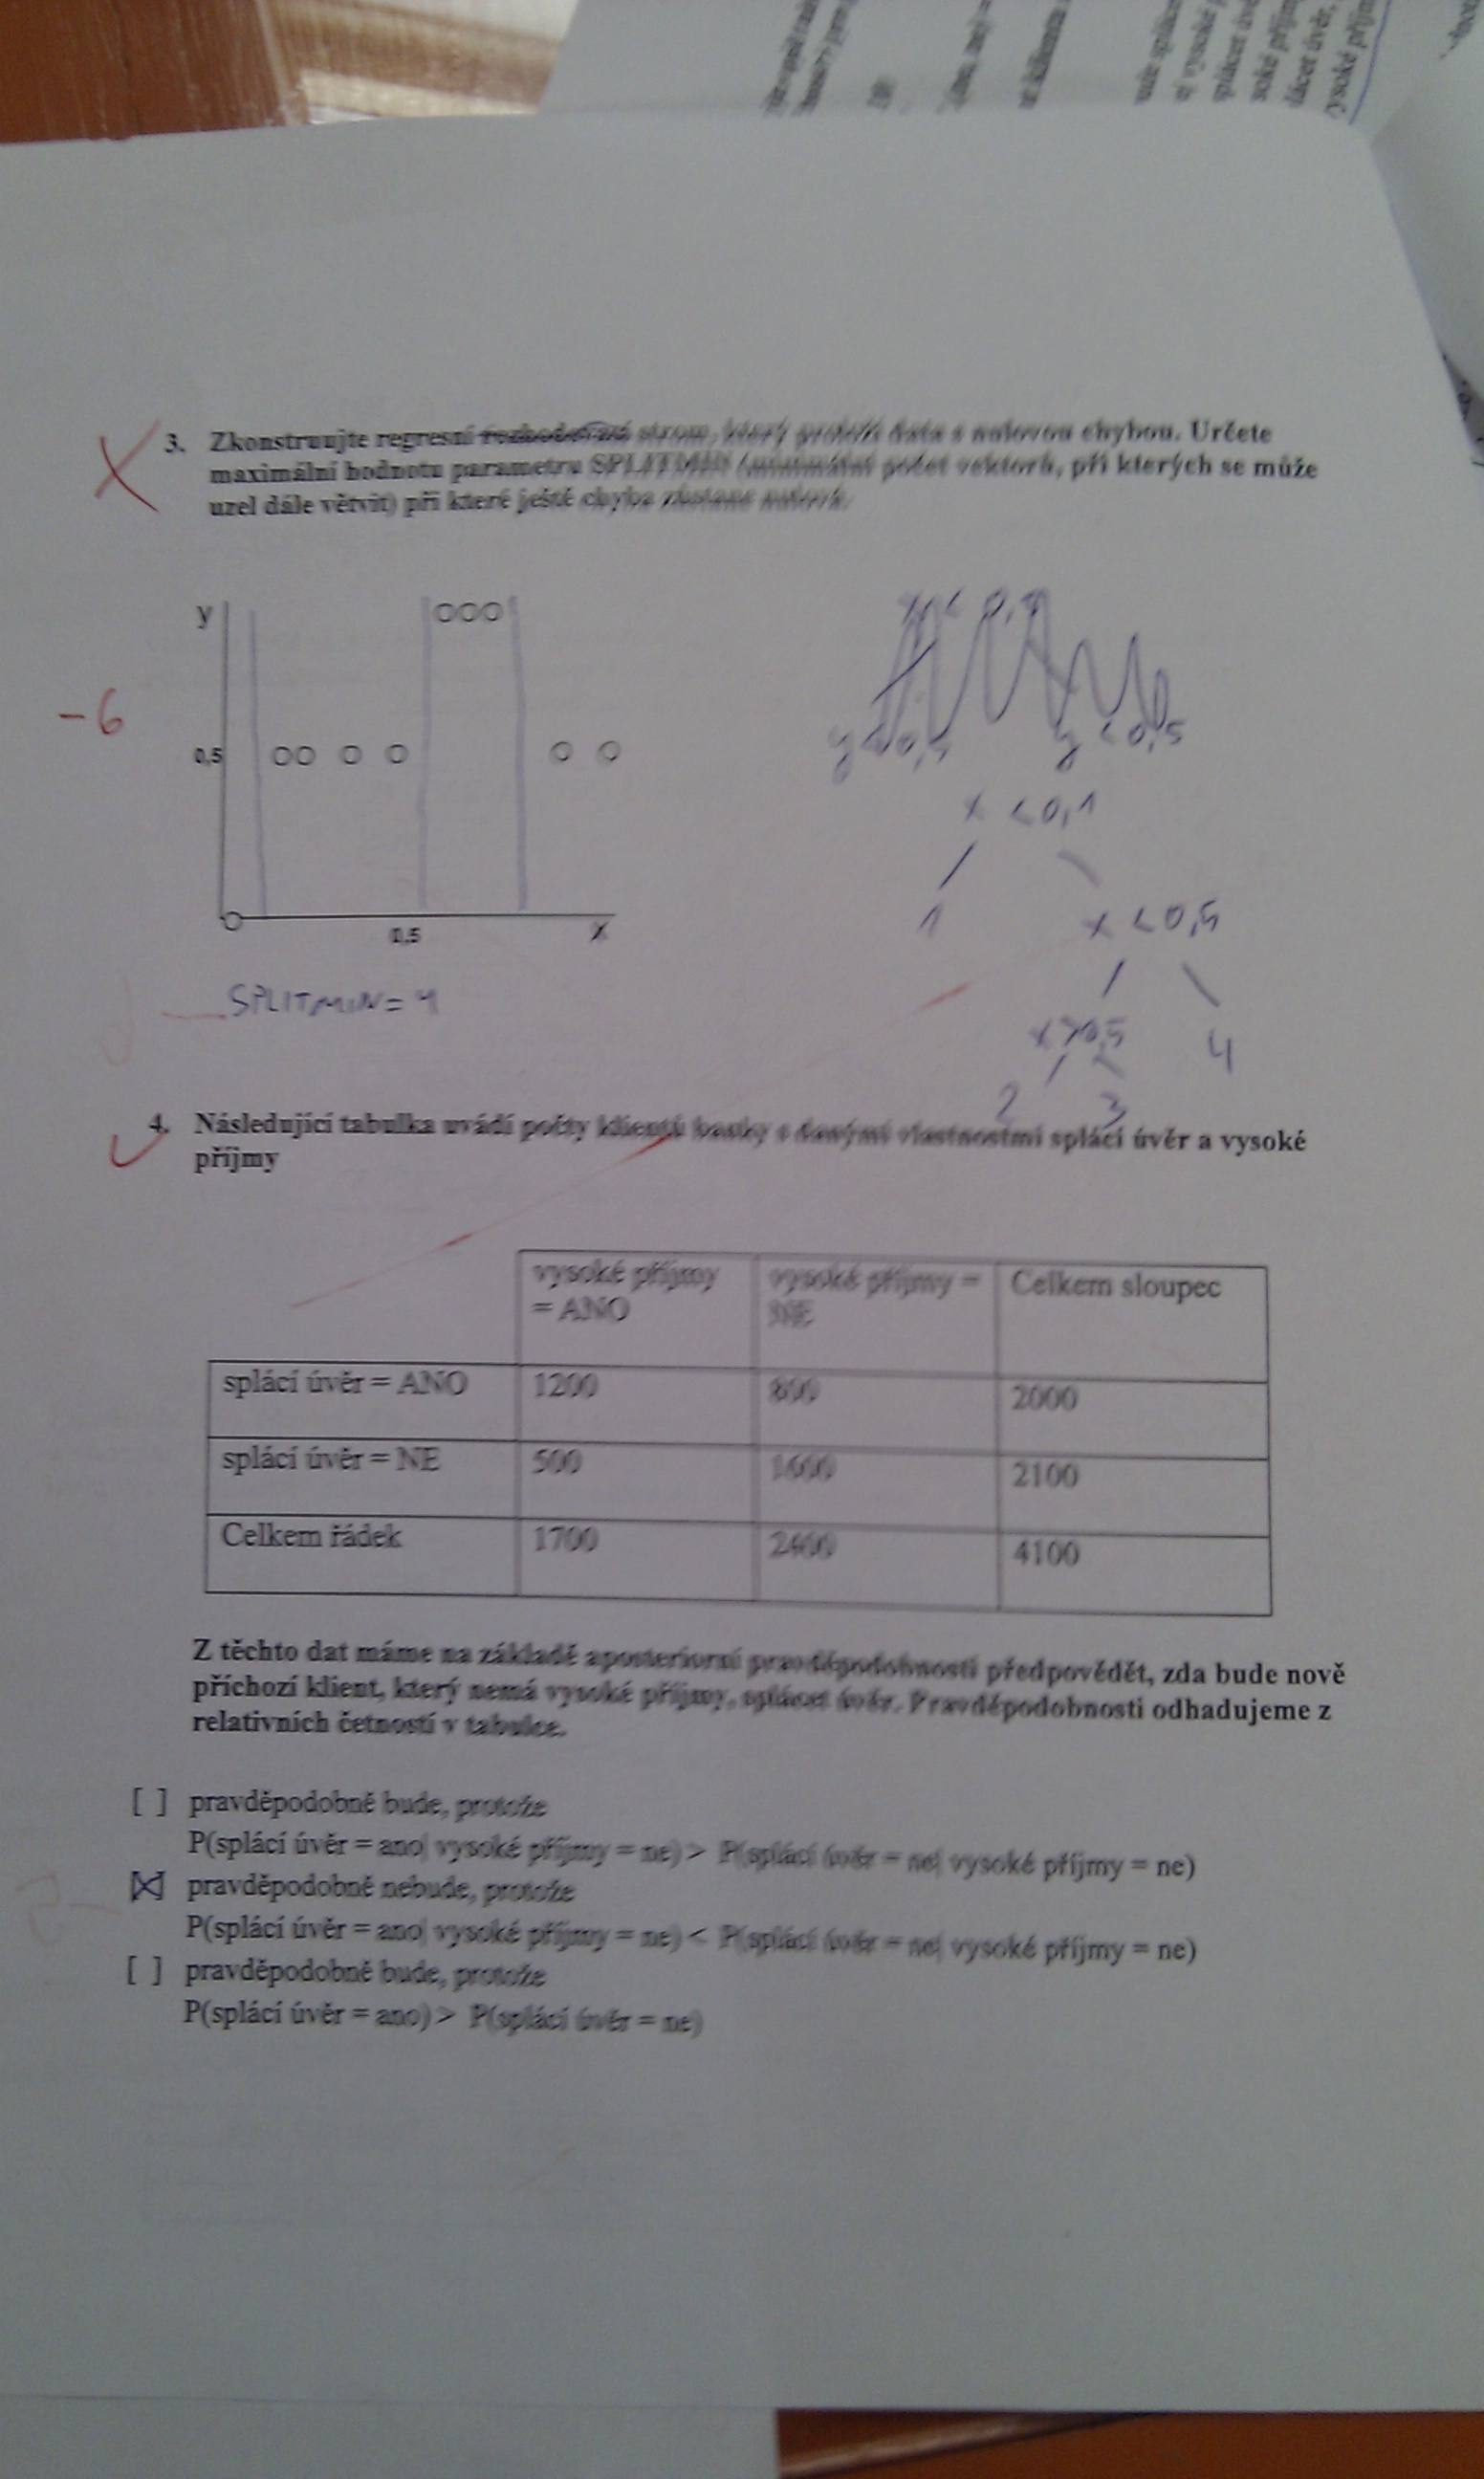 3. Zkonstruujte regresní rozhodovací strom, který proloží data s nulovou chybou. Určete
maximální hodnotu parametru SPLITMIN (minimální počet vektorů, při kterých se může
uzel dále větvit) při které ještě chyba zůstane nulová.
y
-6
0,5
0,5
x
y<0,5
y<0,5
x <0,1
1
x <0,5
x>0,5
4
2
3
SPLITMIN=4
4. Následující tabulka uvádí počty klientů banky s danými vlastnostmi splácí úvěr a vysoké
příjmy
vysoké příjmy = ANO
vysoké příjmy = NE
Celkem sloupec
splácí úvěr = ANO 1200 800 2000
splácí úvěr = NE 500 1600 2100
Celkem řádek 1700 2400 4100
Z těchto dat máme na základě aposteriorní pravděpodobnosti předpovědět, zda bude nově
příchozí klient, který nemá vysoké příjmy, splácet úvěr. Pravděpodobnosti odhadujeme z
relativních četností v tabulce.
[ ] pravděpodobně bude, protože
P(splácí úvěr = ano| vysoké příjmy = ne) > P(splácí úvěr = ne| vysoké příjmy = ne)
[X] pravděpodobně nebude, protože
P(splácí úvěr = ano| vysoké příjmy = ne) < P(splácí úvěr = ne| vysoké příjmy = ne)
[ ] pravděpodobně bude, protože
P(splácí úvěr = ano) > P(splácí úvěr = ne)